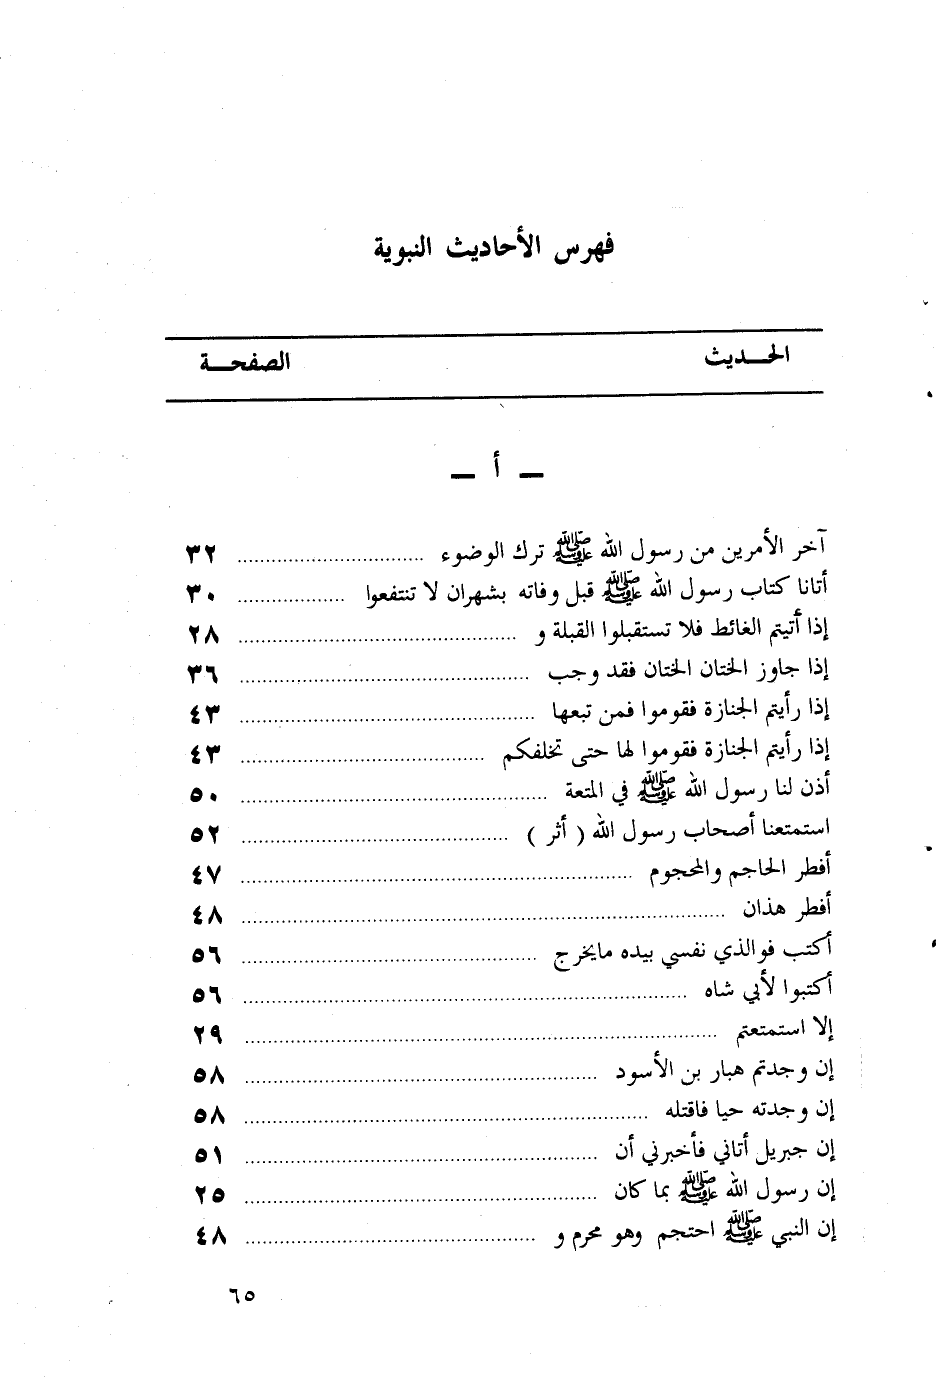 فهرس الأحاديث النبوية
الحـــديث الصفحـــة
ـ أ ـ
آخر الأمرين من رسول الله ﷺ ترك الوضوء ........ ٣٢
أتانا كتاب رسول الله ﷺ قبل وفاته بشهران لا تنتفعوا ........ ٣٠
إذا أتيتم الغائط فلا تستقبلوا القبلة و ........ ٢٨
إذا جاوز الختان الختان فقد وجب ........ ٣٦
إذا رأيتم الجنازة فقوموا فمن تبعها ........ ٤٣
إذا رأيتم الجنازة فقوموا لها حتى تخلفكم ........ ٤٣
أذن لنا رسول الله ﷺ في المتعة ........ ٥٠
استمتعنا أصحاب رسول الله ( أثر ) ........ ٥٢
أفطر الحاجم والمحجوم ........ ٤٧
أفطر هذان ........ ٤٨
أكتب فوالذي نفسي بيده مايخرج ........ ٥٦
أكتبوا لأبي شاه ........ ٥٦
إلا استمتعتم ........ ٢٩
إن وجدتم هبار بن الأسود ........ ٥٨
إن وجدته حيا فاقتله ........ ٥٨
إن جبريل أتاني فأخبرني أن ........ ٥١
إن رسول الله ﷺ بما كان ........ ٢٥
إن النبي ﷺ احتجم وهو محرم و ........ ٤٨
٦٥